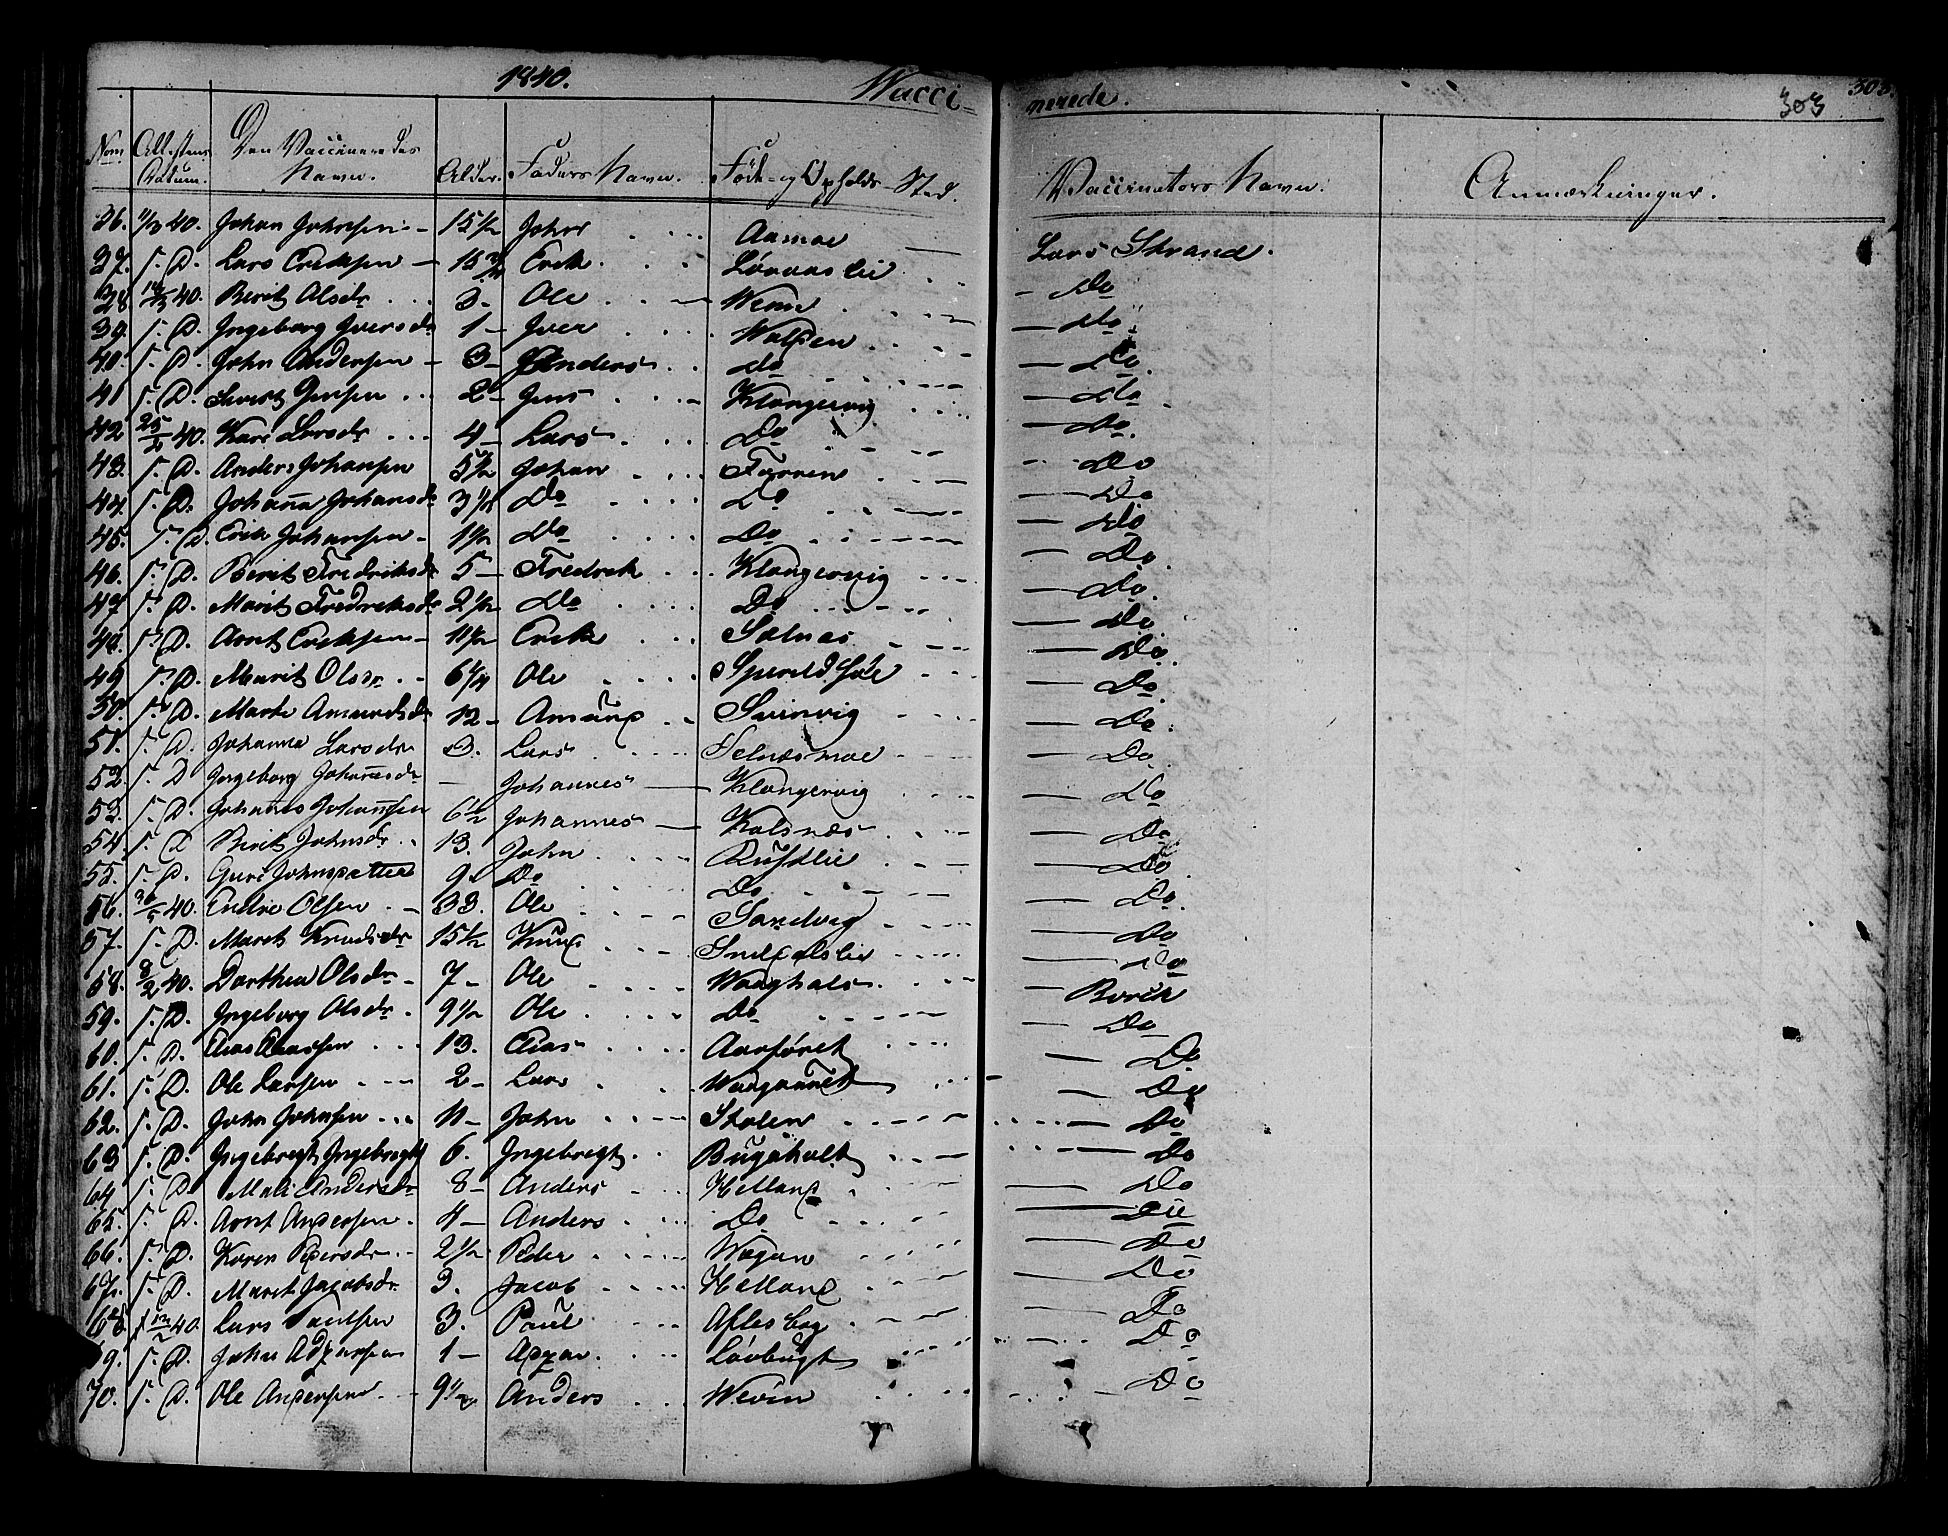 1840. Vacci- nerede. 303 303.
Nom Attestens Datum. Den Vaccineredes Navn. Alder. Faders Navn. Føde- og Opholds-Sted. Vaccinateurs Navn. Anmærkninger.
36. 11/3 40. Johan Johnsen 15 1/2 John Aamoe Lars Strand.
37. s. D. Lars Eriksen 15 Erik Løvaaslie Do
38 40. Berit Olsdr 3. Ole Do
39. s. D. Ingeborg Iversdr 1 Iver Walsen Do
40. s. D. John Andersen 3 Anders do Do
41 s. D. Sivert Jensen 2 Jens Klongervig Do
42 25/2 40. Kari Larsdr 4 Lars Do Do
43. s. D. Anders Johansen 5 1/2 Johan Forren Do
44. s. D. Johanna Johansdr 3 1/2 Do Do Do
45. s. D. Erik Johansen 1 1/2 Do Do Do
46. s. D. Berit Fredriksdr 5 Fredrek Klongervig Do
47 s. D. Marit Fredreksdr 2 1/2 Do Do Do
48. s. D. Arnt Eriksen 11 1/2 Erik Selnæs Do
49 s. D. Marit Olsdr 6 1/4 Ole Do
50. s. D. Marte Amundsdr 12 Amund Svinvig Do
51. s. D. Johanna Larsdr 3. Lars Selnæsmoe Do
52. s. D Ingeborg Johanesdr — Johannes Klongervig Do
53. s. D. Johanes Johansen 6 1/2 Johannes Kalsnæs Do
54 s. D Berit Johnsdr 13. John Rustlie Do
55. s. D. Guri Johnsdatter 9 Do Do Do
56. 26/5 40. Endre Olsen 33. Ole Sandvig Do
57. s. D. Marit Knudsdr 15 1/2 Knud Do
58. 8/2 40. Dorthea Olsdr 7 Ole Waaghals Do
59. s. D. Ingeborg Olsdr 9 1/2 Ole Do Borch
60. s. D. Elias Eliassen 13. Elias Aarsøret Do
61. s. D. Ole Larsen 2 Lars Do
62. s. D. John Johnsen 11 John Stolen Do
63 s. D. Ingebregt Ingebregts 6. Ingebregt Bugeholt Do
64 s. D. Mali Andersdr 8 Anders Helland Do
65. s. D. Arnt Andersen 4 Anders Do
66. s. D. Karen Pedersdr 2 1/2 Peder Wogan Do
67. s. D. Marit Jacobsdr 3. Jacob Helland Do
68 12/2 40. Lars Paulsen 3. Paul Do
69. s. D. John 1 Løvbugt Do
70. s. D. Ole Andersen 9 1/2 Anders Do